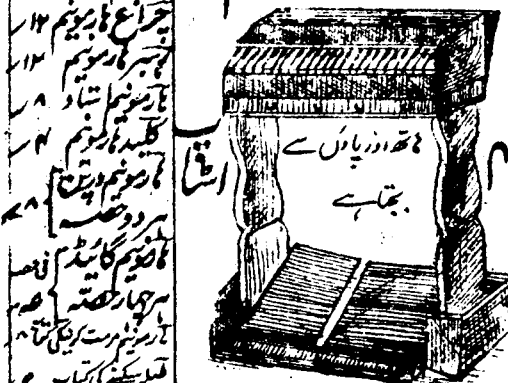 چراغ ہارمونیم ۱۲؍
رہبر ہارمونیم ۱۲؍
ہارمونیم استاد ۸؍
کلید ہارمونیم ۴؍
ہارمونیم درپن
ہر دو حصہ
ہارمونیم گائیڈ
ہر چہار حصہ
ہارمونیم مرمت کرنیکی کتاب ۸؍
طبلہ سیکھنے کی کتاب
ہاتھ اور پاؤں سے
بجتا ہے